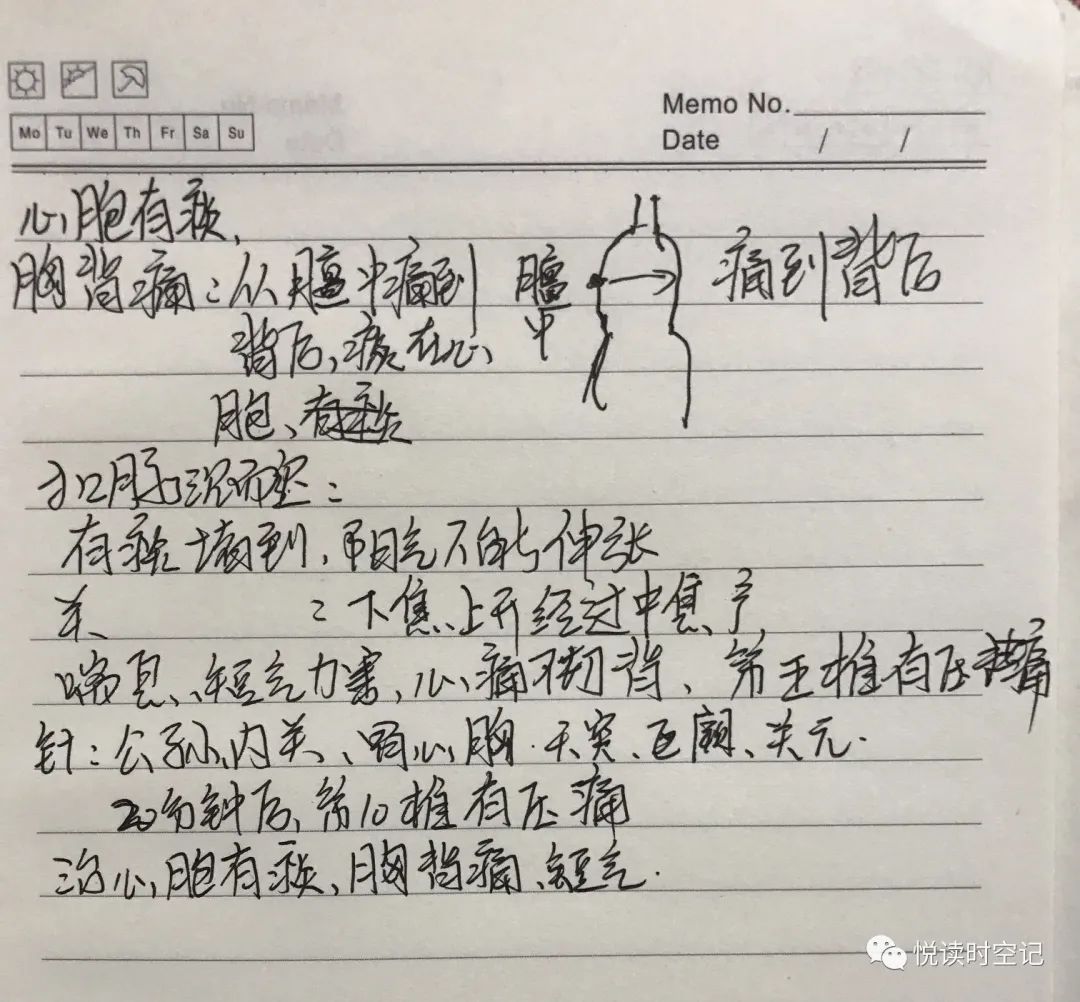 Memo No.
Date / /
Mo Tu We Th Fr Sa Su
心胞有
胸背痛:从膻中痛到
背后,在心
胞、有
膻中
痛到背后
寸口脉沉而紧:
有堵到,阳气不能伸张
关 :下焦上升经过中焦,
喘息、短气,心痛背、第五椎有压痛
针:公孙、内关、胃心胸.天突、巨阙、关元.
20分钟后,第10椎有压痛
治心胞有,胸背痛、短气.
悦读时空记